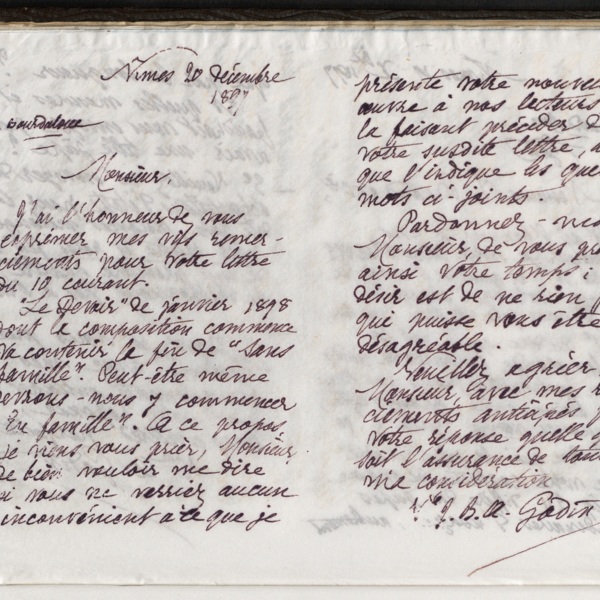 Nîmes 20 décembre
1897
Bourdaloue
Monsieur,
J'ai l'honneur de vous
exprimer mes vifs remer-
ciements pour votre lettre
du 10 courant.
"Le Devoir" de janvier 1898
dont la composition commence
va contenir la fin de "Sans
famille". Peut-être même
devrons-nous y commencer
"En famille". A ce propos
je viens vous prier, Monsieur,
de bien vouloir me dire
si vous ne verriez aucun
inconvénient à ce que je
présente votre nouvel
œuvre à nos lecteurs
la faisant précéder de
votre susdite lettre,
que l'indique les que
mots ci-joints.
Pardonnez-mo
Monsieur, de vous
ainsi votre temps ;
désir est de ne rien
qui puisse vous être
désagréable.
Veuillez agréer,
Monsieur, avec mes re
ciements anticipés
votre réponse quelle
soit l'assurance de tou
ma considération
Vve J. B. A. Godin